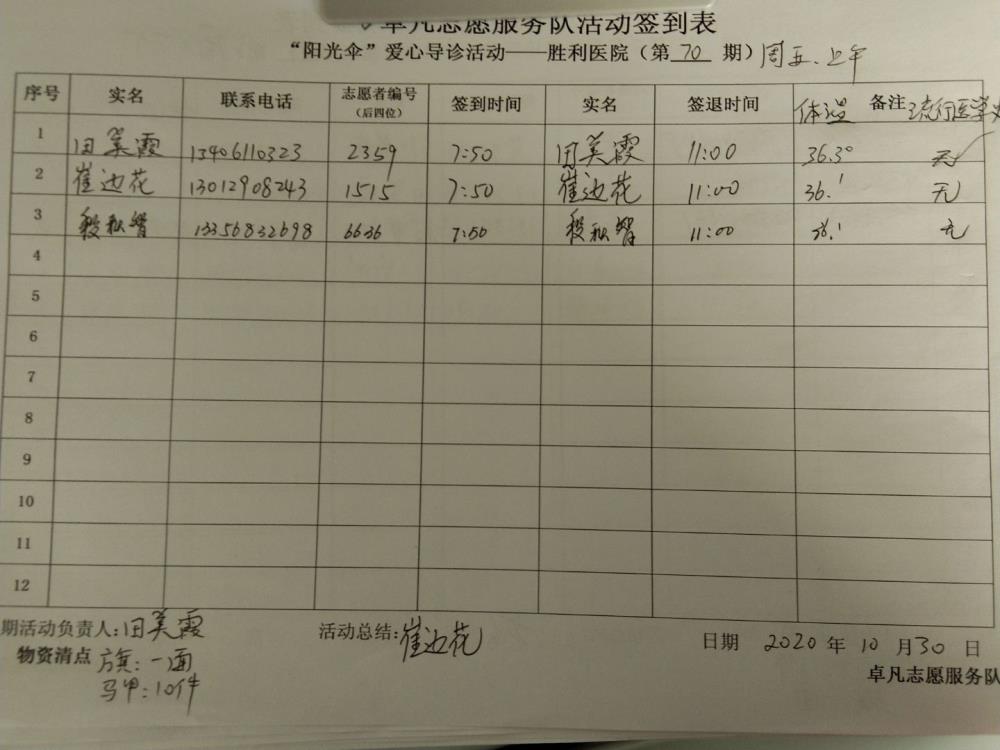 卓凡志愿服务队活动签到表
“阳光伞”爱心导诊活动——胜利医院（第 70 期）周五.上午
序号 实名 联系电话 志愿者编号（后四位） 签到时间 实名 签退时间 体温 备注 流行医学史
1 田美霞 13406110323 2359 7:50 田美霞 11:00 36.3° 无
2 崔边花 13012908243 1515 7:50 崔边花 11:00 36.1 无
3 殷秋智 13356832698 6636 7:50 殷秋智 11:00 36.1 无
4
5
6
7
8
9
10
11
12
期活动负责人:田美霞 活动总结:崔边花 日期 2020 年 10 月 30 日
物资清点 旗：一面 卓凡志愿服务队
马甲：10件